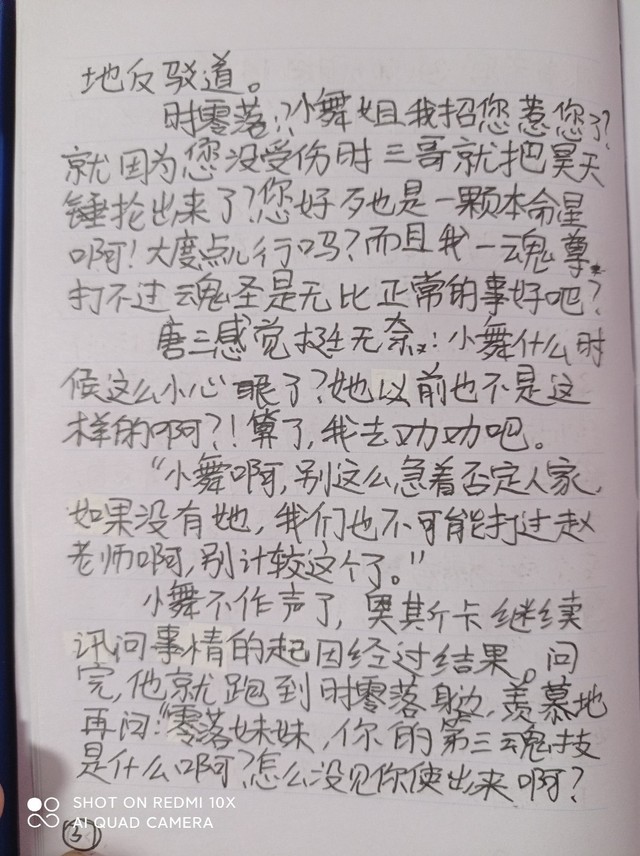 地反驳道。
时零落:?小舞姐我招您惹您了?
就因为您没受伤时三哥就把昊天
锤抡出来了?您好歹也是一颗本命星
啊!大度点儿行吗?而且我一魂尊
打不过魂圣是无比正常的事好吧?
唐三感觉挺无奈:小舞什么时
候这么小心眼了?她以前也不是这
样的啊?!算了,我去劝劝吧。
“小舞啊,别这么急着否定人家,
如果没有她,我们也不可能打过赵
老师啊,别计较这个了。”
小舞不作声了,奥斯卡继续
讯问事情的起因经过结果。问
完,他就跑到时零落身边,羡慕地
再问:“零落妹妹,你的第三魂技
是什么啊?怎么没见你使出来啊?
SHOT ON REDMI 10X
AI QUAD CAMERA